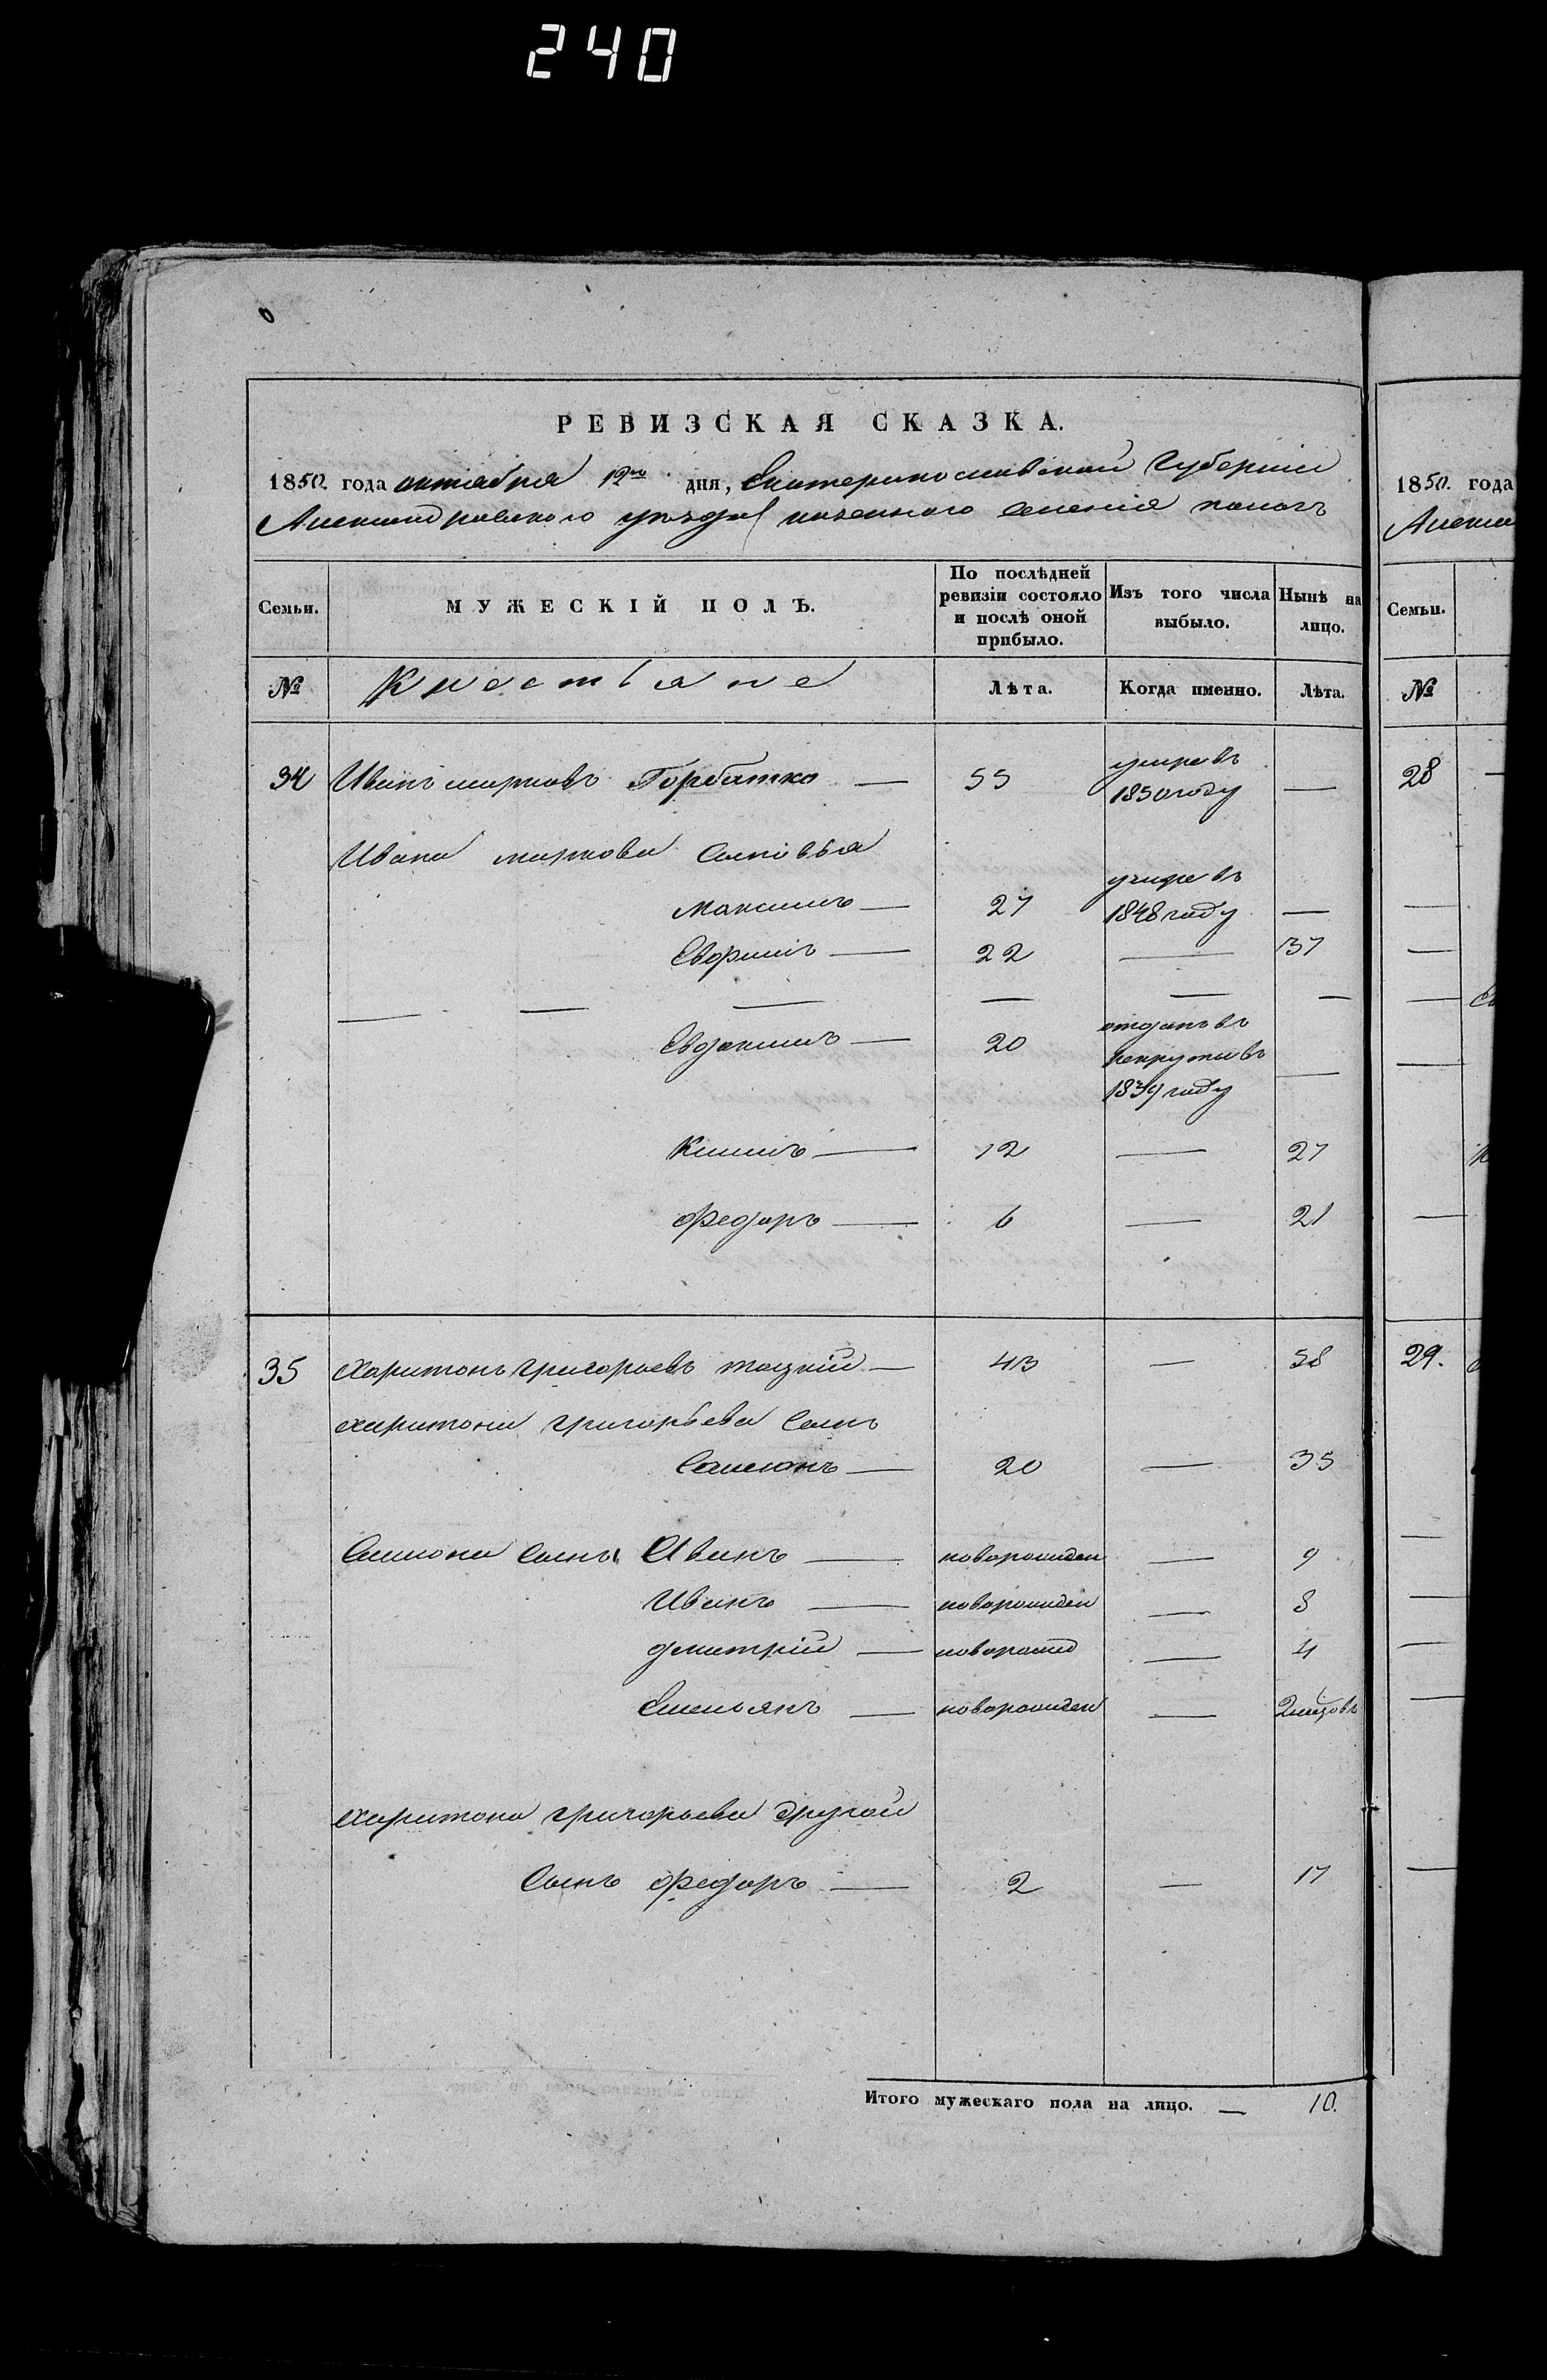 240
РЕВИЗСКАЯ СКАЗКА.
1850. года октября 12го дня, Екатеринославской Губернии
Александровского уезда казенного селения
Семьи. МУЖЕСКІЙ ПОЛЪ. По послѣдней ревизіи состояло и послѣ оной прибыло. Изъ того числа выбыло. Нынѣ на лицо.
№ Крестьяне Лѣта. Когда именно. Лѣта.
34 Иванъ марковъ Горбатко — 55 умре въ 1850 году —
Ивана маркова сыновья
Максимъ — 27 умре въ 1848 году —
22 — 37
— — — — — —
Евдокимъ — 20 отданъ въ рекруты въ 1839 году —
Климъ — 12 — 27
Федоръ — 6 — 21
35 Харитонъ григорьевъ — 43 — 58
харитона григорьева сынъ
Самсонъ — 20 — 35
Самсона сыны Иванъ — новорожден — 9
Иванъ — новорожден — 8
дмитрій — новорожд — 4
Емельянъ — новорожден — 2
харитона григорьева другой
сынъ федоръ — 2 — 17
Итого мужескаго пола на лицо. — 10.
1850. года
Алекса
Семьи.
№
28
29.